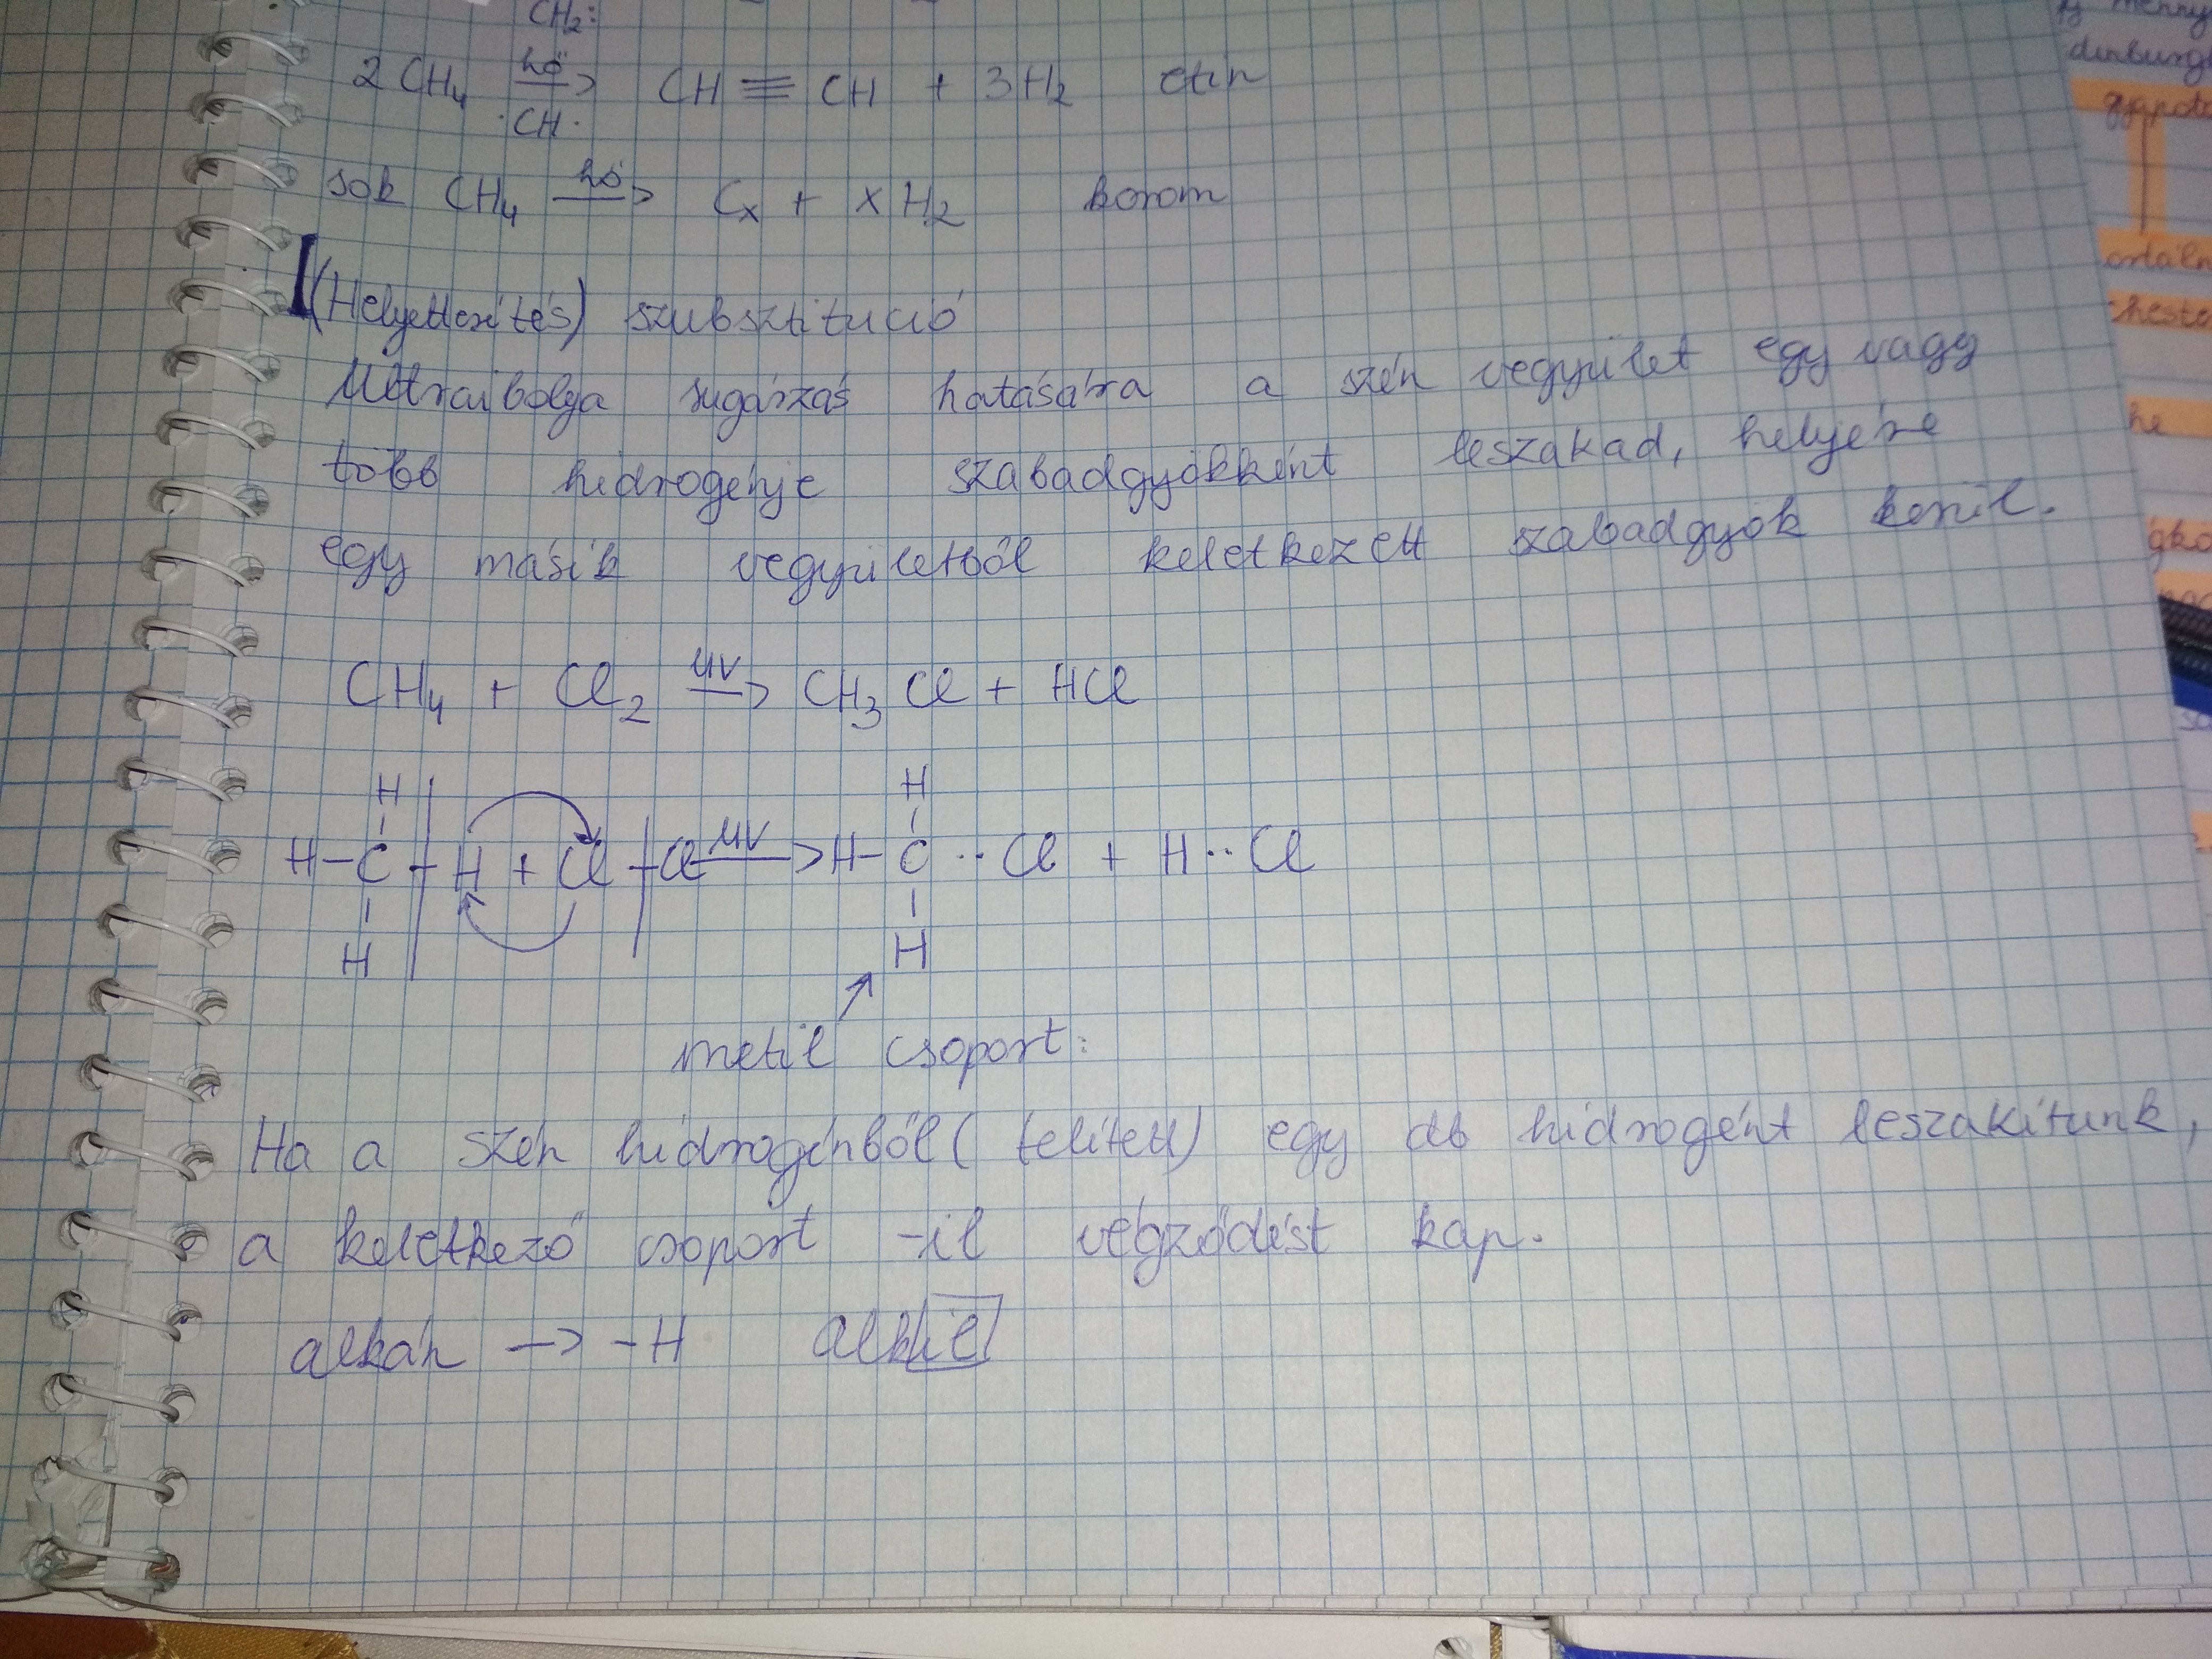 CH₂:
2 CH₄ —hő→ CH ≡ CH + 3H₂ etin
·CH·
sok CH₄ —hő→ Cₓ + x H₂ korom
(Helyettesítés) szubsztitúció
Ultraibolya sugárzás hatására a szén vegyület egy vagy
több hidrogénje szabadgyökként leszakad, helyére
egy másik vegyületből keletkezett szabadgyök kerül.
CH₄ + Cl₂ —UV→ CH₃ Cl + HCl
H H
H-C-H + Cl-Cl —UV→ H-C··Cl + H··Cl
H H
metil csoport:
Ha a szén hidrogénből (telített) egy db hidrogént leszakítunk,
a keletkező csoport -il végződést kap.
alkán → -H alkil
dinburgh
cheste
he